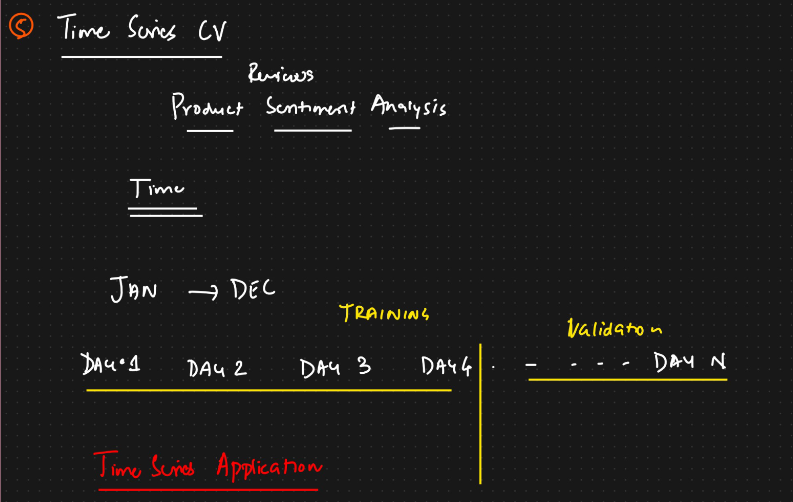 ⑤ Time Series CV
Reviews
Product Sentiment Analysis
Time
JAN → DEC
TRAINING
Validation
DAY 1 DAY 2 DAY 3 DAY 4 . - - - - DAY N
Time Series Application